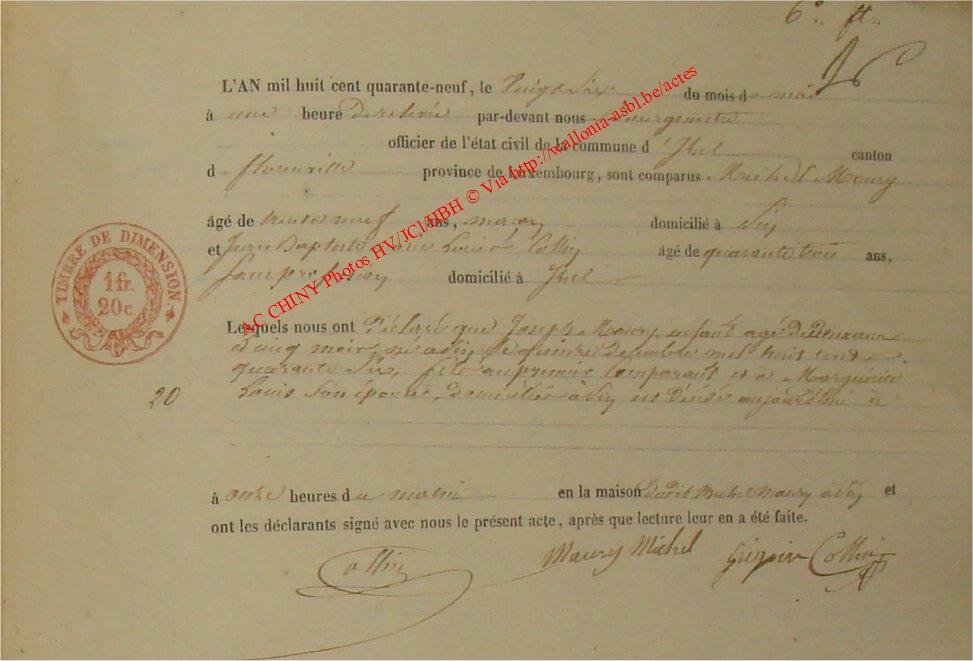 6° ft.
L'AN mil huit cent quarante-neuf, le Vingt Six du mois de mai
à une heure De relevée par-devant nous Bourgmestre
officier de l'état civil de la commune d' Izel canton
d florenville province de Luxembourg, sont comparus Michel Maury
âgé de trente neuf ans, domicilié à Pin
et Jean Baptiste Louis Collin âgé de quarante trois ans,
Sans profession domicilié à Izel
Lesquels nous ont Déclaré que Joseph Maury enfant agé De deux ans
et cinq mois, né à Pin, le quinze Decembre mil huit cent
quarante Six, fils du premier Comparant et de Marguerite
20 Louis Son épouse, Domiciliés à Pin est Décédé aujourd'hui à
à onze heures du matin en la maison Dudit Michel Maury à Pin et
ont les déclarants signé avec nous le présent acte, après que lecture leur en a été faite.
Collin Maury Michel Grégoire Collin
TIMBRE DE DIMENSION.
1 fr.
20 c.
AC CHINY Photos HV/JCJ/HBH © Via http://wallonia-asbl.be/actes